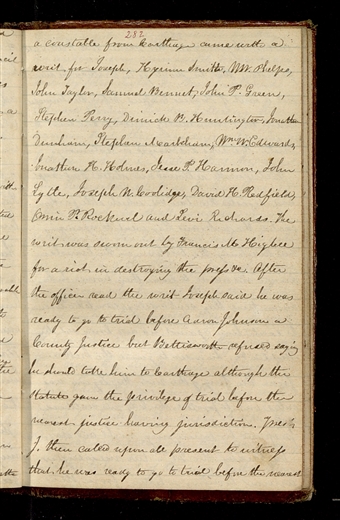 282
a constable from Carthage came with a
writ for Joseph, Hyrum Smith, W. W. Phelps,
John Taylor, Samuel Bennet, John P. Green,
Stephen Perry, Dimick B. Huntington, Jonathan
Dunham, Stephen Markham, Wm W. Edwards,
Jonathan H. Holmes, Jesse P. Harmon, John
Lytle, Joseph W. Coolidge, David H. Redfield,
Orrin P. Rockwell and Levi Richards. The
writ was sworn out by Francis M. Higbee
for a riot in destroying the press &c. After
the officer read the writ Joseph said he was
ready to go to trial before Aaron Johnson a
County Justice but Bettisworth refused saying
he should take him to Carthage although the
Statute gave the privilege of trial before the
nearest justice having jurisdiction.
J. then called upon all present to witness
that he was ready to go to trial before the nearest